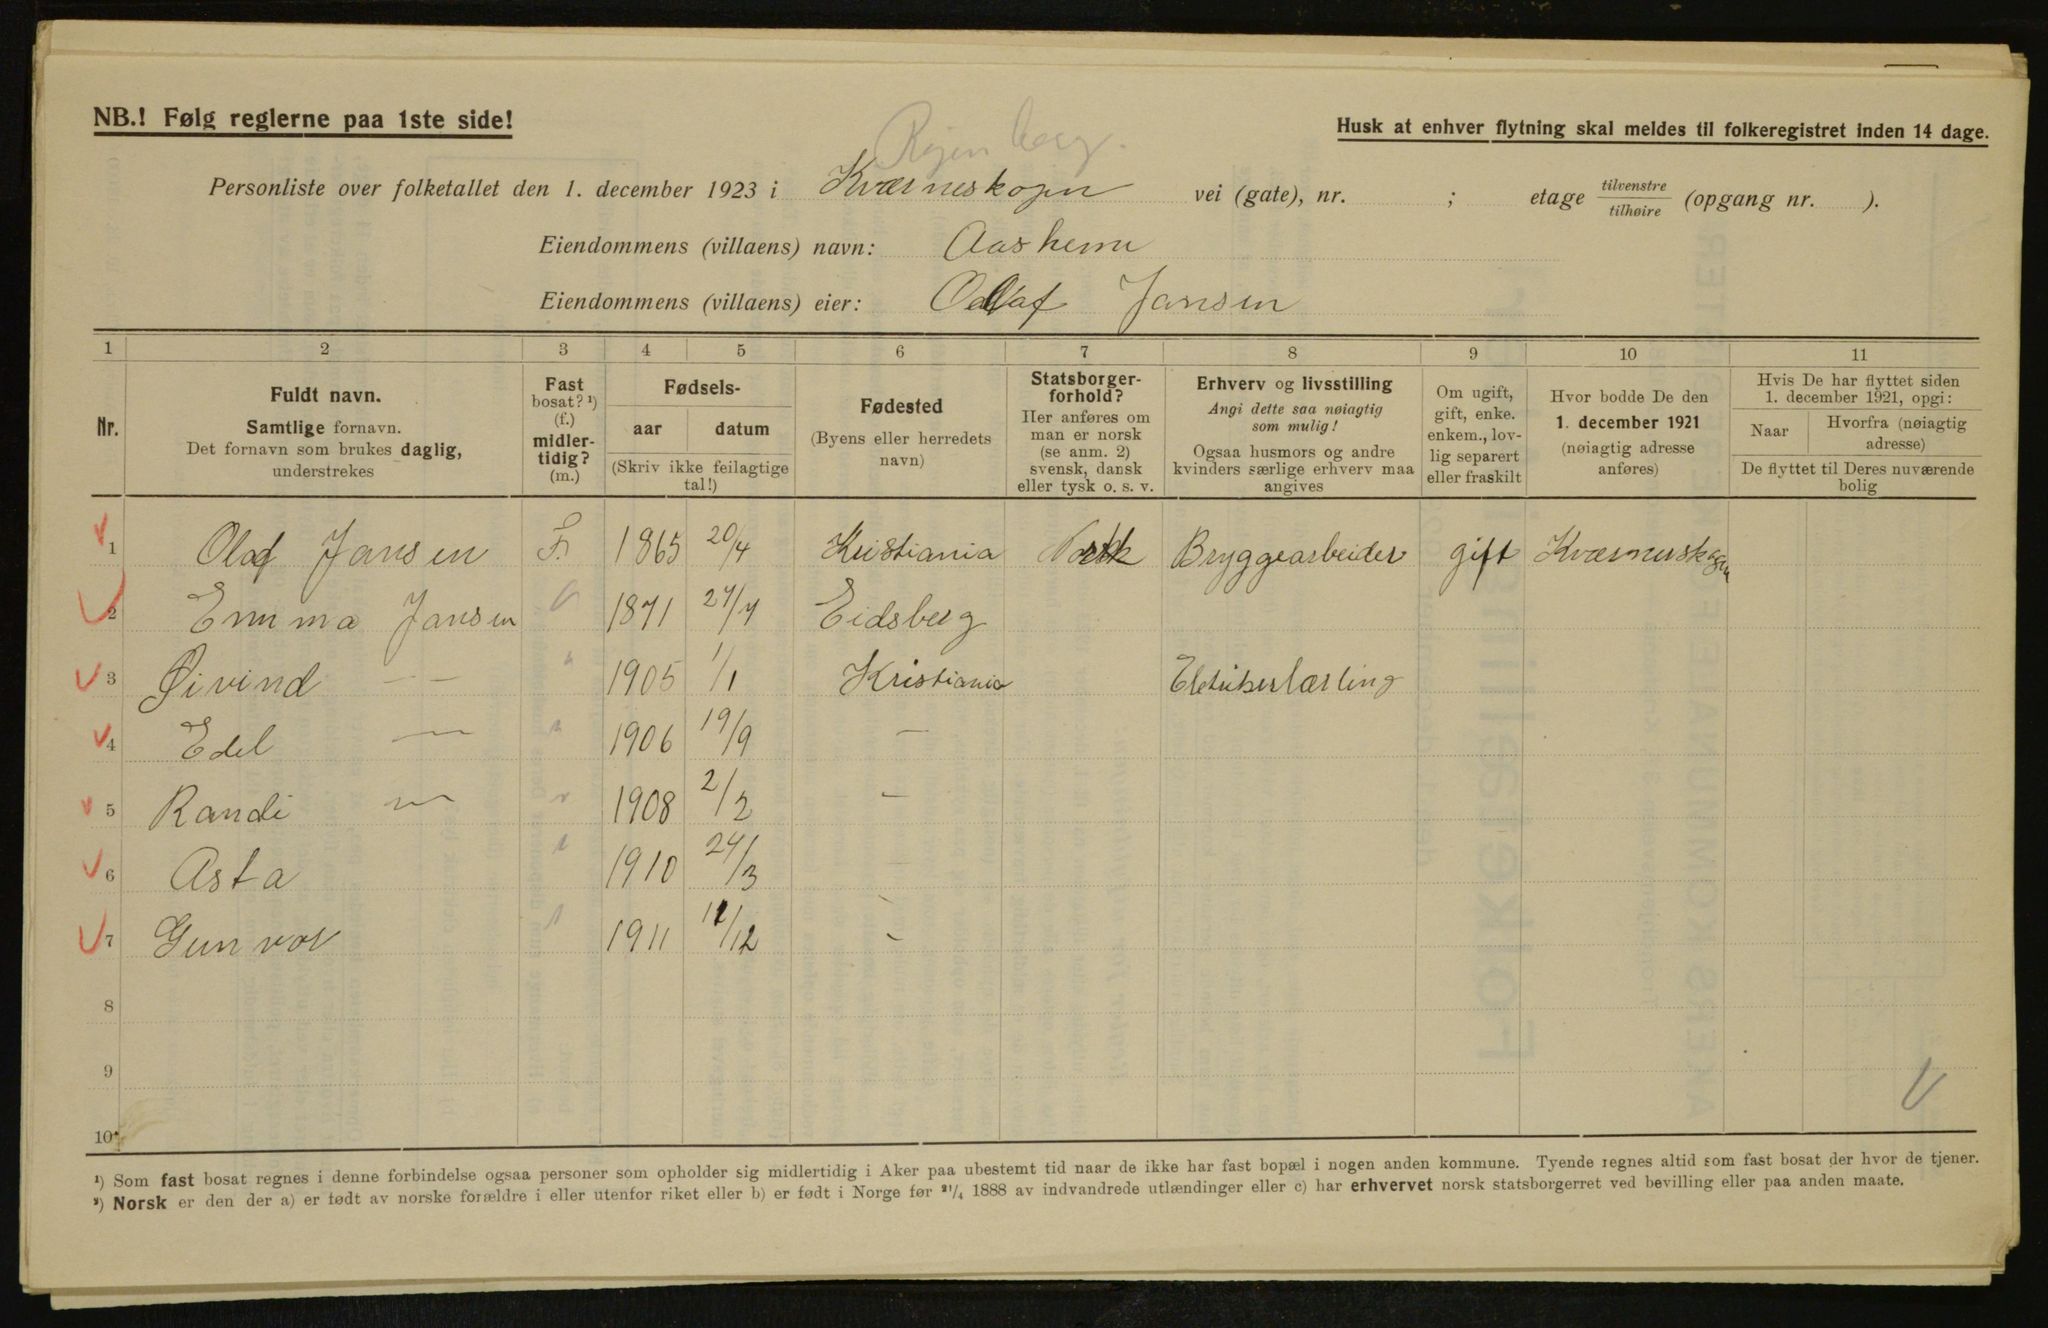 NB.! Følg reglerne paa 1ste side!
Husk at enhver flytning skal meldes til folkeregistret inden 14 dage.
Personliste over folketallet den 1. december 1923 i Kværneskogen vei (gate), nr. ; etage tilvenstre / tilhøire (opgang nr. ).
Eiendommens (villaens) navn: Aasheim
Eiendommens (villaens) eier: Olaf Jansen
1 2 3 4 5 6 7 8 9 10 11
Nr.
Fuldt navn.
Samtlige fornavn.
Det fornavn som brukes daglig,
understrekes
Fast
bosat? ¹)
(f.)
midler-
tidig?
(m.)
Fødsels-
aar datum
(Skriv ikke feilagtige
tal!)
Fødested
(Byens eller herredets
navn)
Statsborger-
forhold?
Her anføres om
man er norsk
(se anm. 2)
svensk, dansk
eller tysk o. s. v.
Erhverv og livsstilling
Angi dette saa nøiagtig
som mulig!
Ogsaa husmors og andre
kvinders særlige erhverv maa
angives
Om ugift,
gift, enke.
enkem., lov-
lig separert
eller fraskilt
Hvor bodde De den
1. december 1921
(nøiagtig adresse
anføres)
Hvis De har flyttet siden
1. december 1921, opgi:
Naar
Hvorfra (nøiagtig
adresse)
De flyttet til Deres nuværende
bolig
1 Olaf Jansen F. 1865 20/4 Kristiania Norsk Bryggearbeider gift Kværnerskogen
2 Emma Jansen 1871 27/7 Eidsberg
3 Øivind — 1905 1/1 Kristiania Eletrikerlærling
4 Edel — 1906 19/9 —
5 Randi — 1908 2/2 —
6 Asta 1910 24/3 —
7 Gunvor 1911 /12 —
8
9
10
¹) Som fast bosat regnes i denne forbindelse ogsaa personer som opholder sig midlertidig i Aker paa ubestemt tid naar de ikke har fast bopæl i nogen anden kommune. Tyende regnes altid som fast bosat der hvor de tjener.
²) Norsk er den der a) er født av norske forældre i eller utenfor riket eller b) er født i Norge før ²¹/₄ 1888 av indvandrede utlændinger eller c) har erhvervet norsk statsborgerret ved bevilling eller paa anden maate.